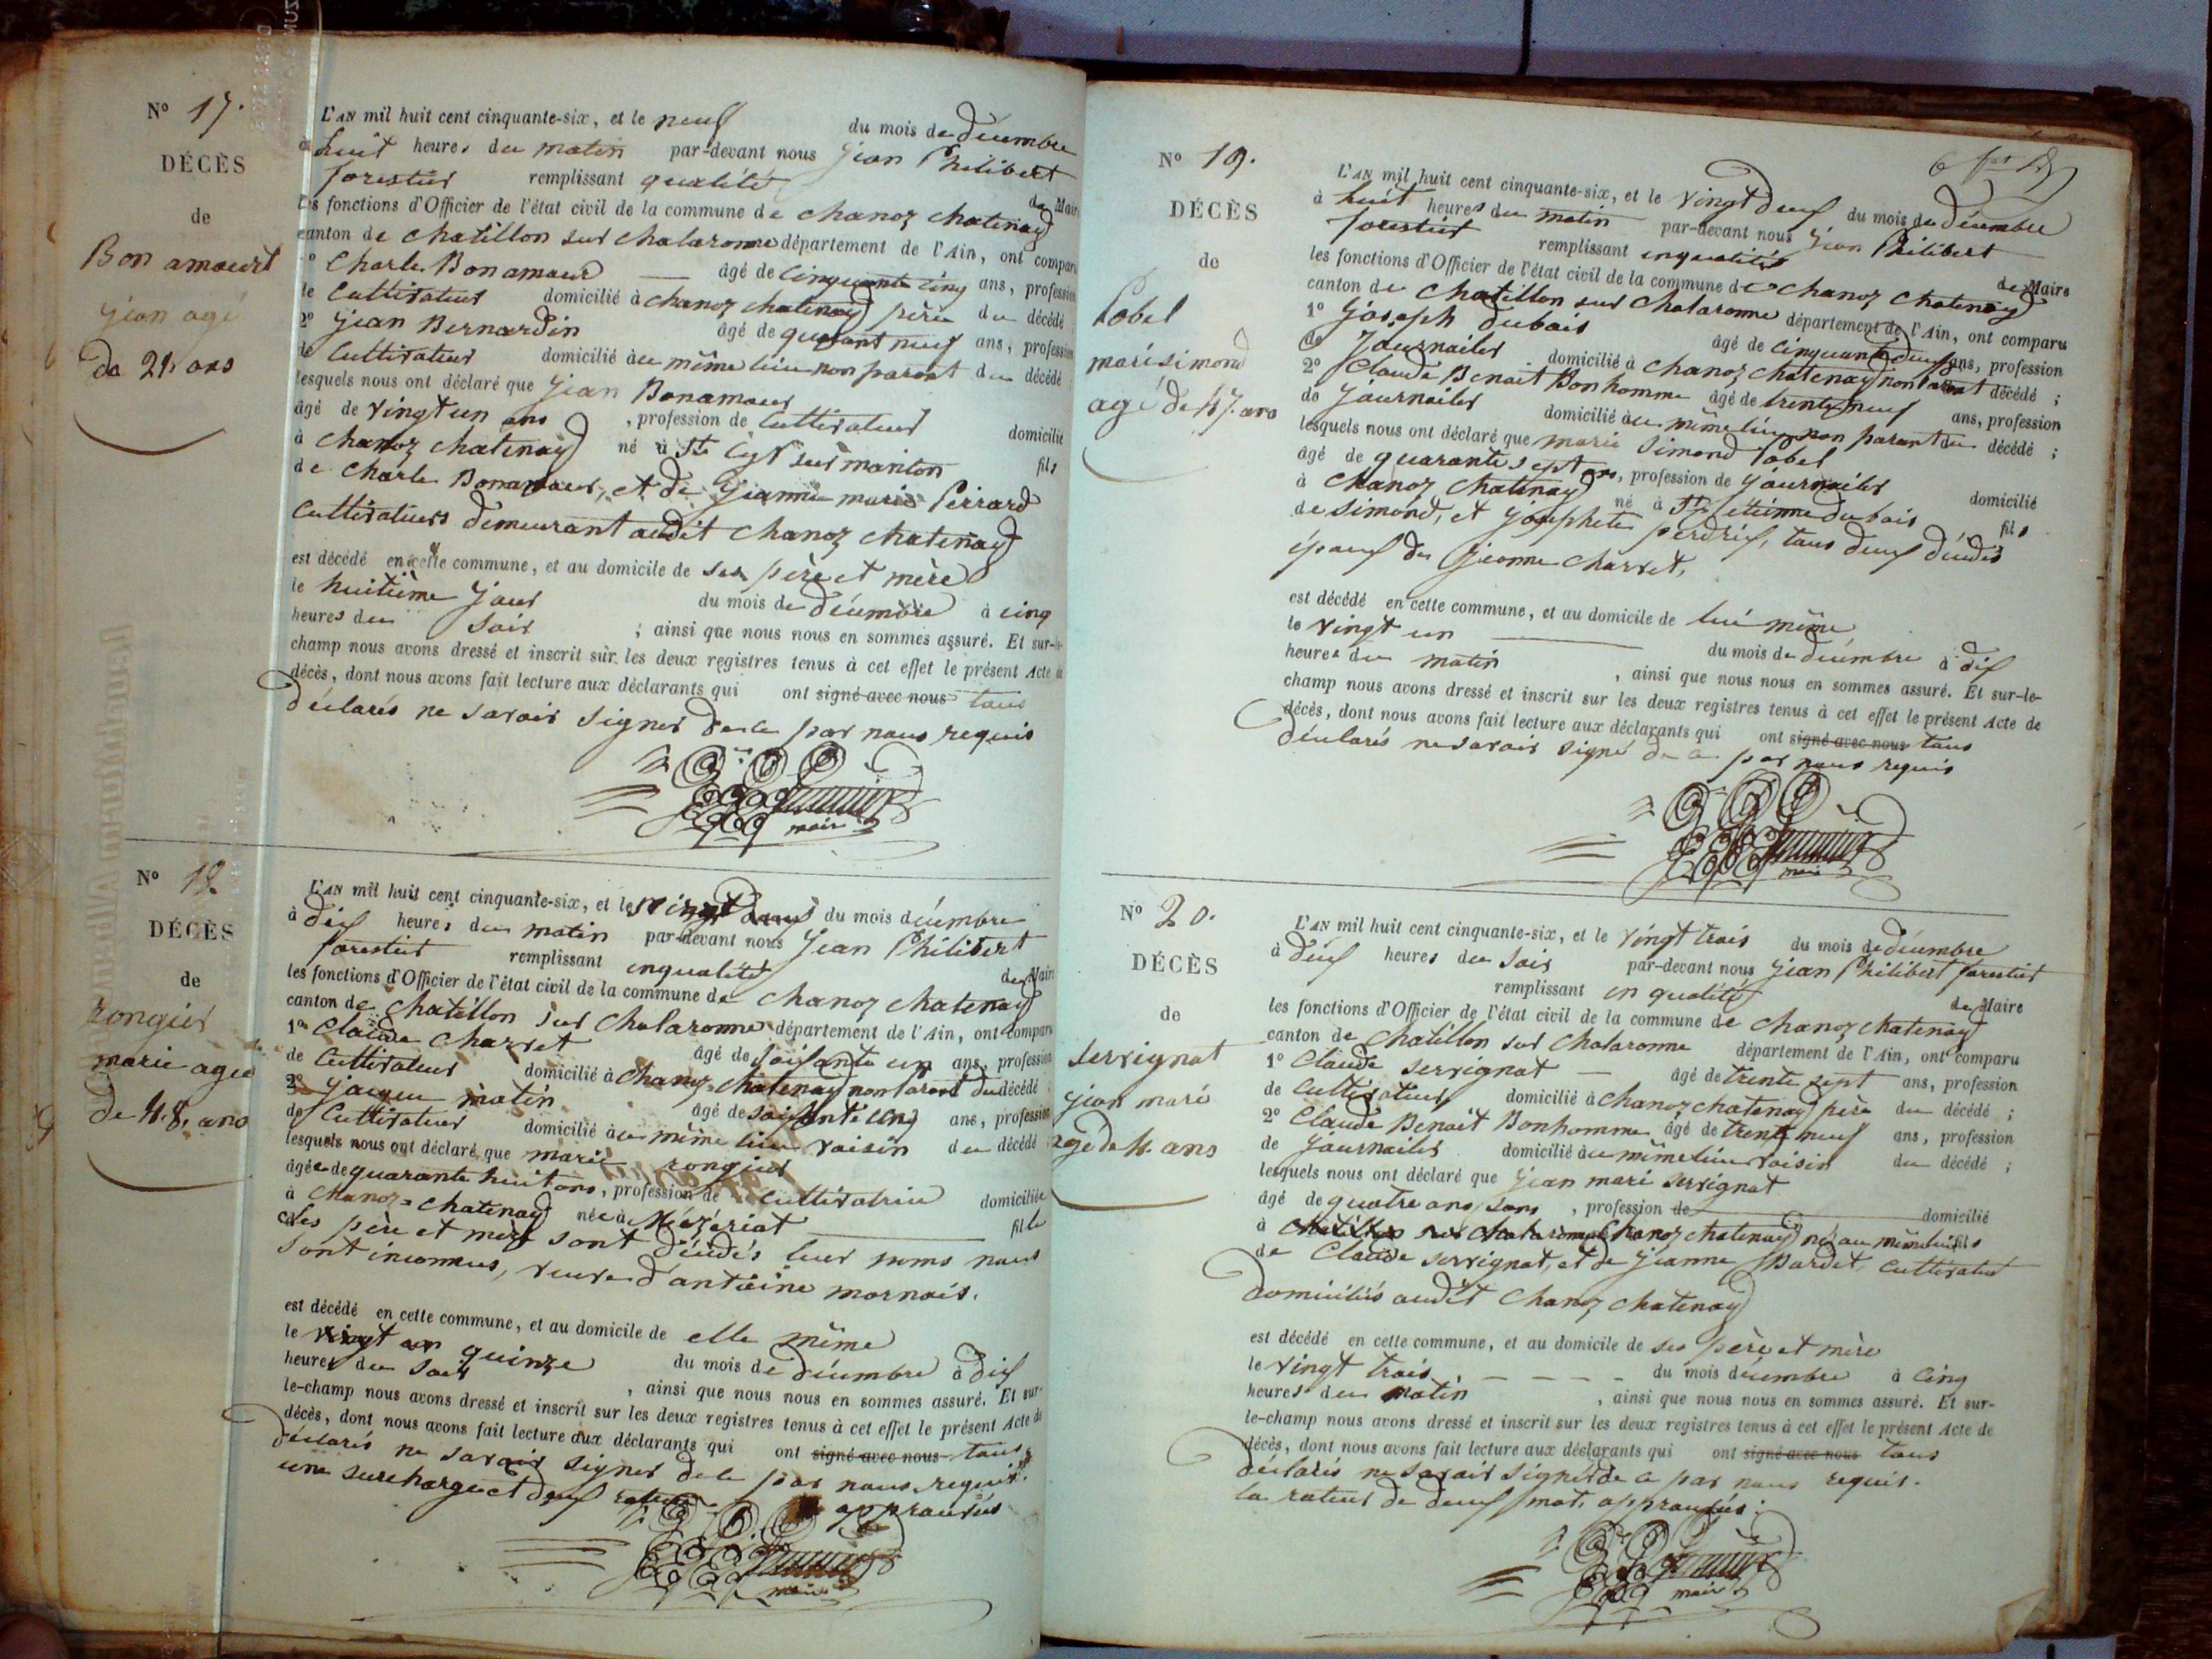 N° 17.
DÉCÈS
de
Bonamourt
jian agé
de 21 ans
L'AN mil huit cent cinquante-six, et le neuf du mois de décembre
à huit heures du matin par-devant nous Jean Philibert
forestier remplissant qualité de Maire
les fonctions d'Officier de l'état civil de la commune de chanoz chatenay
canton de chatillon sur chalaronne département de l'Ain, ont comparu
1° Charle Bonamour — âgé de cinquante cinq ans, profession
de Cultivateur domicilié à chanoz chatenay père du décédé
2° Jean Bernardin âgé de quarant neuf ans, profession
de Cultivateur domicilié à u même lieu non parant du décédé
lesquels nous ont déclaré que Jian Bonamour
âgé de vingt un ans, profession de cultivateur domicilié
à chanoz chatenay né à St Cyr sur manton fils
de Charle Bonamour, et de Jianne marie Perrard
cultivateurs demeurant audit chanoz chatenay
est décédé en cette commune, et au domicile de ses père et mère
le huitième jour du mois de décembre à cinq
heures du soir ; ainsi que nous nous en sommes assuré. Et sur-le-
champ nous avons dressé et inscrit sur les deux registres tenus à cet effet le présent Acte de
décès, dont nous avons fait lecture aux déclarants qui ont signé avec nous tous
déclarés ne savoir signer de ce par nous requis
maire
N° 18.
DÉCÈS
de
rongier
marie agee
de 48. ans
L'AN mil huit cent cinquante-six, et le vingt deux du mois décembre
à dix heures du matin par-devant nous Jean Philibert
forestier remplissant enqualité de Maire
les fonctions d'Officier de l'état civil de la commune de chanoz chatenay
canton de chatillon sur chalaronne département de l'Ain, ont comparu
1° Claude Charvet âgé de soisante un ans, profession
de Cultivateur domicilié à chanoz chatenay non parant du décédé
2° jaque matin âgé de soisante cinq ans, profession
de Cultivateur domicilié à u même lieu voisin du décédé
lesquels nous ont déclaré que marie rongier
âgée de quarante huit ans, profession de cultivatrice domiciliée
à Chanoz=chatenay née à Mézériat fille
des père et mère sont décédés leur noms nous
sont inconnus, veuve d'antoine mornais.
est décédé en cette commune, et au domicile de elle même
le vingt un quinze du mois de décembre à dix
heures du soir, ainsi que nous nous en sommes assuré. Et sur-
le-champ nous avons dressé et inscrit sur les deux registres tenus à cet effet le présent Acte de
décès, dont nous avons fait lecture aux déclarants qui ont signé avec nous tous
déclarés ne savoir signer de ce par nous requis.
une surcharge et deux approuvés
maire
N° 19.
DÉCÈS
de
Pobel
marisimond
agé de 47. ans
L'AN mil huit cent cinquante-six, et le vingt deux du mois de décembre
à huit heures du matin par-devant nous Jean Philibert
forestier remplissant enqualité de Maire
les fonctions d'Officier de l'état civil de la commune de chanoz chatenay
canton de chatillon sur chalaronne département de l'Ain, ont comparu
1° Joseph dubois âgé de cinquante deux ans, profession
de Journailer domicilié à chanoz chatenay non parant décédé ;
2° Claude Benoit Bonhomme âgé de trente neuf ans, profession
de Journailer domicilié à u même lieu non parant du décédé ;
lesquels nous ont déclaré que marie Simond Pobel
âgé de quarante sept ans, profession de journailer domicilié
à chanoz chatenay né à St étienne du bois fils
de simond, et josephete perdrix, tous deux décédés
épous de Jeanne Charvet,
est décédé en cette commune, et au domicile de lui même
le vingt un du mois de décembre à dix
heures du matin, ainsi que nous nous en sommes assuré. Et sur-le-
champ nous avons dressé et inscrit sur les deux registres tenus à cet effet le présent Acte de
décès, dont nous avons fait lecture aux déclarants qui ont signé avec nous tous
déclarés ne savoir signé de ce par nous requis
maire
N° 20.
DÉCÈS
de
servignat
jian mari
agé de 4. ans
L'AN mil huit cent cinquante-six, et le vingt trois du mois de décembre
à deux heures du soir par-devant nous Jean Philibert forestier
remplissant en qualité de Maire
les fonctions d'Officier de l'état civil de la commune de chanoz chatenay
canton de chatillon sur chalaronne département de l'Ain, ont comparu
1° Claude servignat — âgé de trente sept ans, profession
de Cultivateur domicilié à chanoz chatenay père du décédé ;
2° Claude Benoit Bonhomme âgé de trente neuf ans, profession
de Journailer domicilié à u même lieu voisin du décédé ;
lesquels nous ont déclaré que Jian mari servignat
âgé de quatre ans sans, profession de domicilié
à chatillon sur chalaronne chanoz chatenay né au même lieu fils
de Claude servignat, et de Jeanne Bardet, cultivateur
domiciliés audit chanoz chatenay
est décédé en cette commune, et au domicile de ses père et mère
le vingt trois — — — — du mois décembre à cinq
heures du matin, ainsi que nous nous en sommes assuré. Et sur-
le-champ nous avons dressé et inscrit sur les deux registres tenus à cet effet le présent Acte de
décès, dont nous avons fait lecture aux déclarants qui ont signé avec nous tous
déclarés ne savoir signer de ce par nous requis.
la rature de deux mots approuvés.
maire